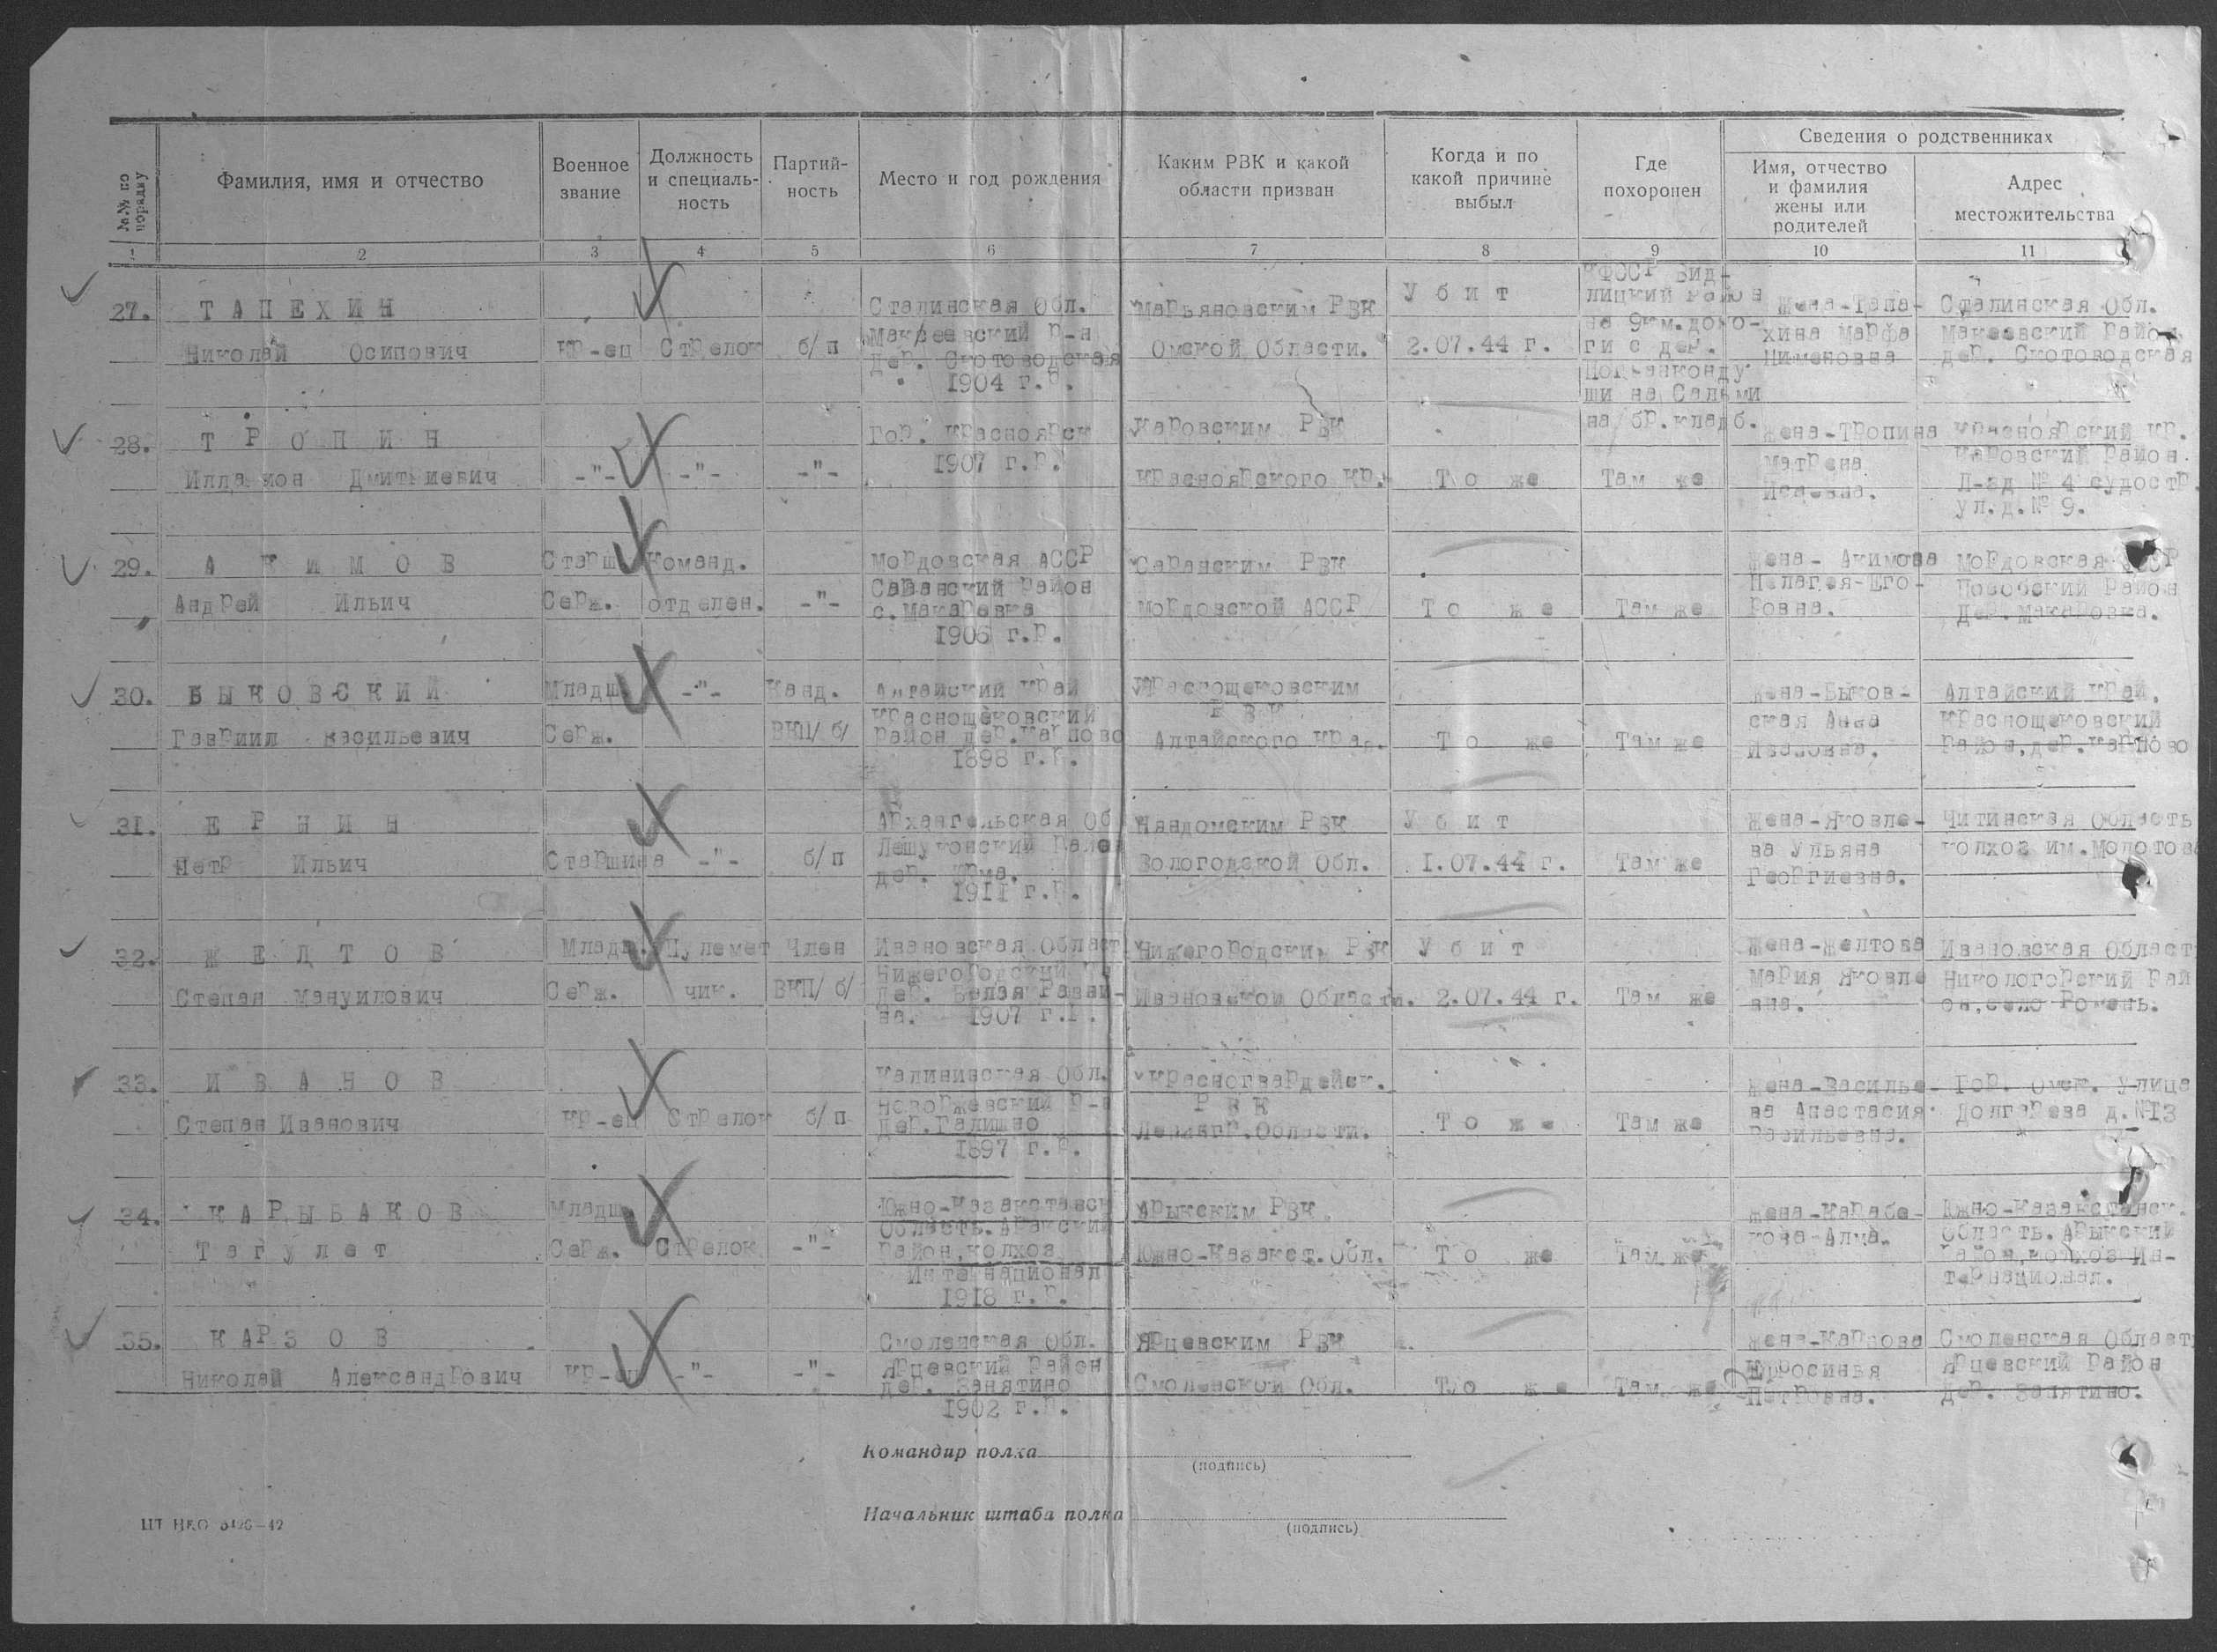 №№ по порядку
Фамилия, имя и отчество
Военное звание
Должность и специаль-ность
Партий-ность
Место и год рождения
Каким РВК и какой области призван
Когда и по какой причине выбыл
Где похоронен
Сведения о родственниках
Имя, отчество и фамилия жены или родителей
Адрес местожительства
1 2 3 4 5 6 7 8 9 10 11
27. ТАПЕХИН
Николай Осипович
Кр-ец Стрелок б/п
Сталинская Обл.
Макеевский р-н
дер. Скотоводская
1904 г.р.
Марьяновским РВК
Омской Области.
Убит
2.07.44 г.
КФССР Вид-
лицкий район
на 9км.доро-
ги с дер.
ши на Сальми
на бр.кладб.
Жена-Тапе-
хина Марфа
Пименовна
Сталинская Обл.
Макеевский район
дер. Скотоводская
28. ТРОПИН
Илларион Дмитриевич
-"- -"- -"-
Гор. Красноярск
1907 г.р.
Каровским РВК
Красноярского Кр.
То же
Там же
Жена-Тропина
Матрена
Красноярский Кр.
Каровский район.
Л-ад № 4 судостр.
ул.д.№ 9.
29. АКИМОВ
Андрей Ильич
Старш. Серж.
Команд. отделен.
-"-
Мордовская АССР
Саранский район
с.Макаровка
1906 г.р.
Саранским РВК
Мордовской АССР
То же
Там же
Жена- Акимова
Пелагея-Его-
ровна.
Мордовская АССР
дер.Макаровка.
30. БЫКОВСКИЙ
Гавриил Васильевич
Младш. Серж.
-"-
Канд. ВКП/б/
Алтайский край
Краснощековский
район дер.Карпово
1898 г.р.
Краснощековским
РВК
Алтайского края.
То же
Там же
Жена-Быков-
ская Анна
Ивановна.
Алтайский край.
Краснощековский
район,дер.Карпово
31. ЕРНИН
Петр Ильич
Старшина -"- б/п
Архангельская Об
Лешуконский район
1911 г.р.
Няндомским РВК
Вологодской Обл.
Убит
1.07.44 г.
Там же
Жена-Яковле-
ва Ульяна
Георгиевна.
Читинская Область
колхоз им.Молотова
32. ЖЕЛТОВ
Степан Мануилович
Младш. Серж.
Пулемет чик.
Член ВКП/б/
Ивановская Област
Нижегородский
дер. Белая Рамай-
на. 1907 г.р.
Нижегородским РВК
Ивановской Области.
Убит
2.07.44 г.
Там же
Жена-Желтова
Мария Яковле
вна.
Ивановская Област
Никологорский Рай
он,село
33. ИВАНОВ
Степан Иванович
Кр-ец Стрелок б/п
Калининская Обл.
Новоржевский р-н
дер.Галишно
1897 г.р.
Красногвардейск.
РВК
Ленингр.Области.
То же
Там же
Жена-Василье-
ва Анастасия
Васильевна.
Гор. Омск. Улица
Долгарева д.№13
34. КАРЫБАКОВ
Тагулет
Младш. Серж.
Стрелок -"-
Южно-Казакстанск
Область.Арысский
район,колхоз
Интернационал
1918 г.р.
Арыкским РВК
Южно-Казакст.Обл.
То же
Там же
Жена-Карабе-
кова-Алма.
Южно-Казакстанск.
Область.Арыкский
район,колхоз Ин-
тернационал.
35. КАРЗОВ
Николай Александрович
Кр-ец -"- -"-
Смоленская Обл.
Ярцевский район
дер. Занятино
1902 г.р.
Ярцевским РВК
Смоленской Обл.
То же
Там же
Жена-Карзова
Ефросинья
Петровна.
Смоленская Област
Ярцевский район
дер. Занятино.
Командир полка
(подпись)
Начальник штаба полка
(подпись)